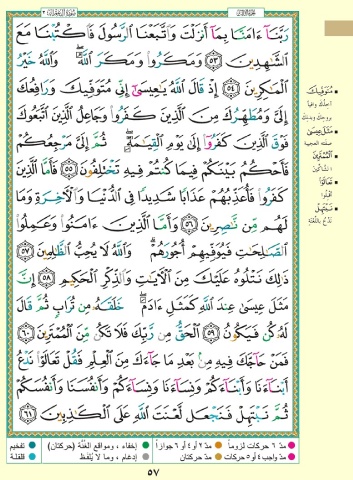 سورة آل عمران ٣
الجزء الثالث
رَبَّنَآ ءَامَنَّا بِمَآ أَنزَلْتَ وَٱتَّبَعْنَا ٱلرَّسُولَ فَٱكْتُبْنَا مَعَ
ٱلشَّٰهِدِينَ ٥٣ وَمَكَرُوا۟ وَمَكَرَ ٱللَّهُ ۖ وَٱللَّهُ خَيْرُ
ٱلْمَٰكِرِينَ ٥٤ إِذْ قَالَ ٱللَّهُ يَٰعِيسَىٰٓ إِنِّى مُتَوَفِّيكَ وَرَافِعُكَ
إِلَىَّ وَمُطَهِّرُكَ مِنَ ٱلَّذِينَ كَفَرُوا۟ وَجَاعِلُ ٱلَّذِينَ ٱتَّبَعُوكَ
فَوْقَ ٱلَّذِينَ كَفَرُوٓا۟ إِلَىٰ يَوْمِ ٱلْقِيَٰمَةِ ۖ ثُمَّ إِلَىَّ مَرْجِعُكُمْ
فَأَحْكُمُ بَيْنَكُمْ فِيمَا كُنتُمْ فِيهِ تَخْتَلِفُونَ ٥٥ فَأَمَّا ٱلَّذِينَ
كَفَرُوا۟ فَأُعَذِّبُهُمْ عَذَابًا شَدِيدًا فِى ٱلدُّنْيَا وَٱلْءَاخِرَةِ وَمَا
لَهُم مِّن نَّٰصِرِينَ ٥٦ وَأَمَّا ٱلَّذِينَ ءَامَنُوا۟ وَعَمِلُوا۟
ٱلصَّٰلِحَٰتِ فَيُوَفِّيهِمْ أُجُورَهُمْ ۗ وَٱللَّهُ لَا يُحِبُّ ٱلظَّٰلِمِينَ ٥٧
ذَٰلِكَ نَتْلُوهُ عَلَيْكَ مِنَ ٱلْءَايَٰتِ وَٱلذِّكْرِ ٱلْحَكِيمِ ٥٨ إِنَّ
مَثَلَ عِيسَىٰ عِندَ ٱللَّهِ كَمَثَلِ ءَادَمَ ۖ خَلَقَهُۥ مِن تُرَابٍ ثُمَّ قَالَ
لَهُۥ كُن فَيَكُونُ ٥٩ ٱلْحَقُّ مِن رَّبِّكَ فَلَا تَكُن مِّنَ ٱلْمُمْتَرِينَ ٦٠
فَمَنْ حَآجَّكَ فِيهِ مِنۢ بَعْدِ مَا جَآءَكَ مِنَ ٱلْعِلْمِ فَقُلْ تَعَالَوْا۟ نَدْعُ
أَبْنَآءَنَا وَأَبْنَآءَكُمْ وَنِسَآءَنَا وَنِسَآءَكُمْ وَأَنفُسَنَا وَأَنفُسَكُمْ
ثُمَّ نَبْتَهِلْ فَنَجْعَل لَّعْنَتَ ٱللَّهِ عَلَى ٱلْكَٰذِبِينَ ٦١
مُتَوَفِّيكَ
مَثَلَ عِيسَىٰ
ٱلْمُمْتَرِينَ
الشاكّين
تَعَالَوْا
أقبلوا
نَبْتَهِلْ
مدّ ٦ حركات لزوماً
مدّ ٢ أو ٤ أو ٦ جوازاً
إخفاء، ومواقع الغُنَّة (حركتان)
تفخيم
مدّ واجب ٤ أو ٥ حركات
مدّ حركتان
إدغام، وما لا يُلفَظ
قلقلة
٥٧